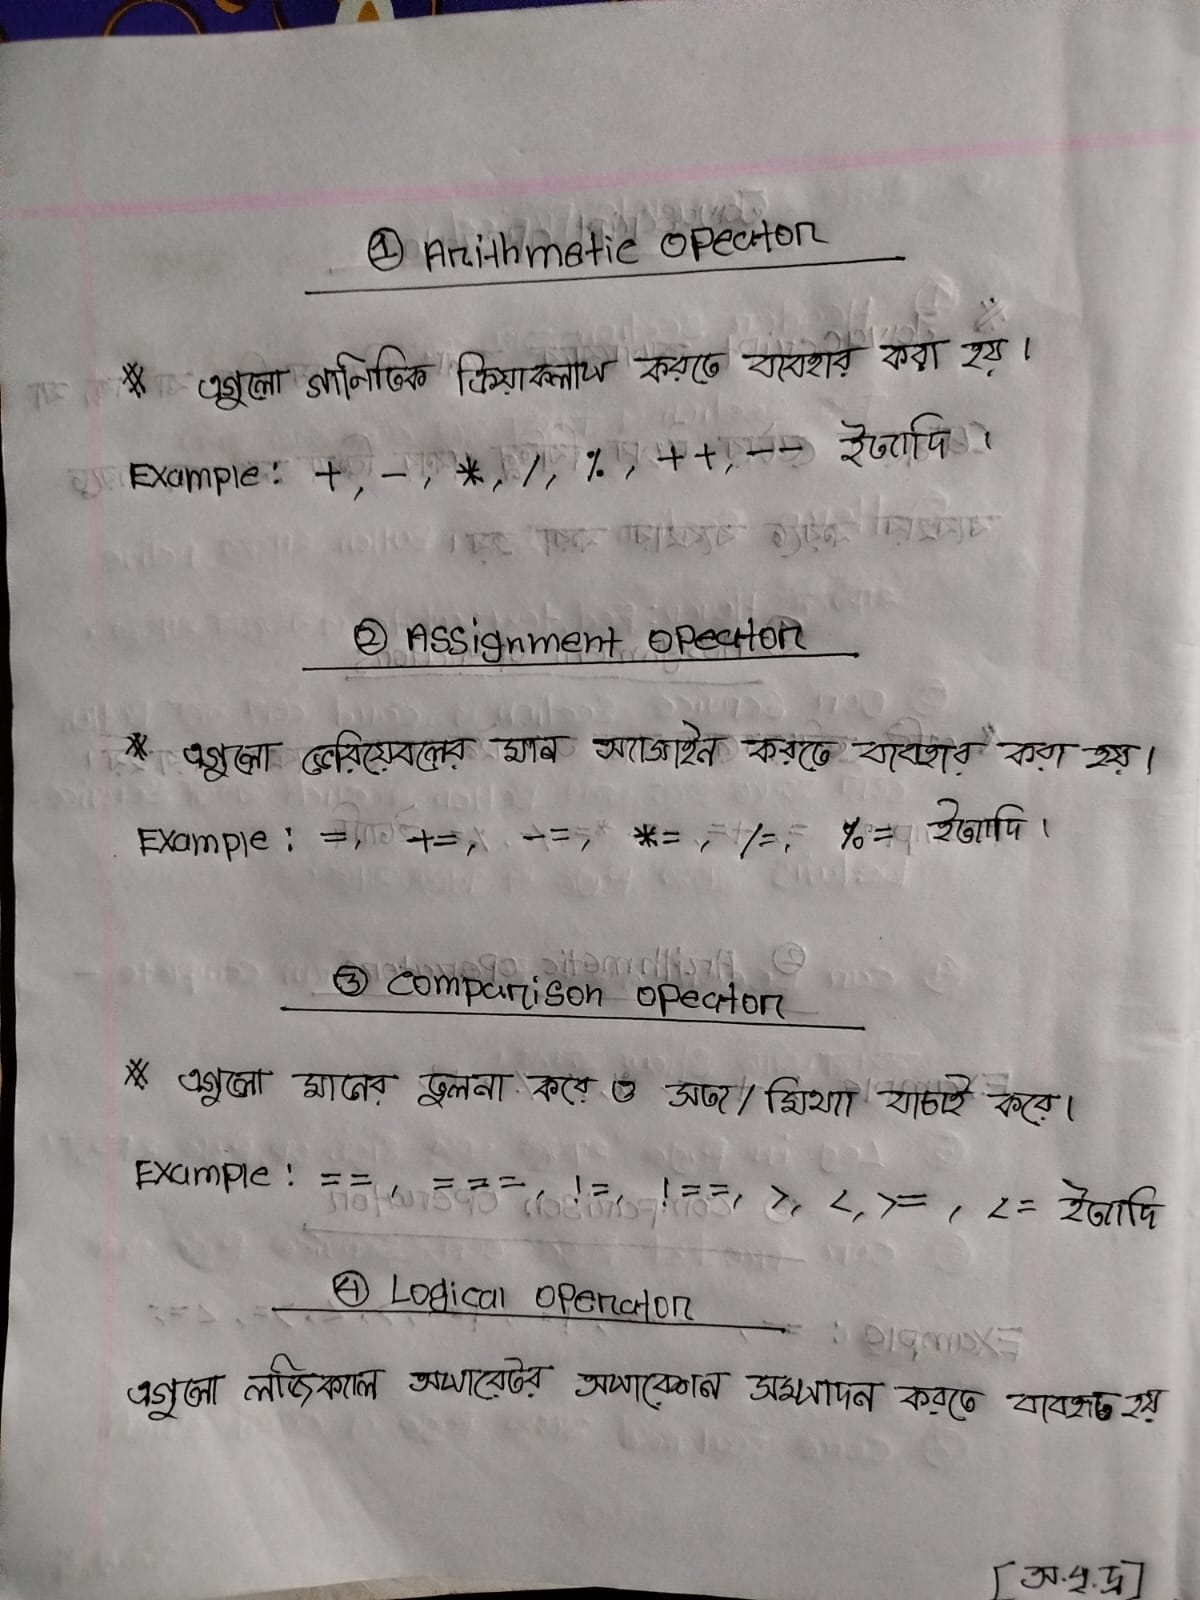 ① Arithmetic opeator
* এগুলো গানিতিক ক্রিয়াকলাপ করতে ব্যবহার করা হয়।
Example: +, -, *, /, %, ++, -- ইত্যাদি।
② Assignment opeator
* এগুলো ভেরিয়েবলের মান অ্যাসাইন করতে ব্যবহার করা হয়।
Example: =, +=, -=, *=, /=, %= ইত্যাদি।
③ comparison opeator
* এগুলো মানের তুলনা করে ও সত্য/মিথ্যা যাচাই করে।
Example: ==, ===, !=, !==, >, <, >=, <= ইত্যাদি
④ Logical operator
এগুলো লজিক্যাল অপারেটর অপারেশন সম্পাদন করতে ব্যবহৃত হয়
[অ.পৃ.দ্র]